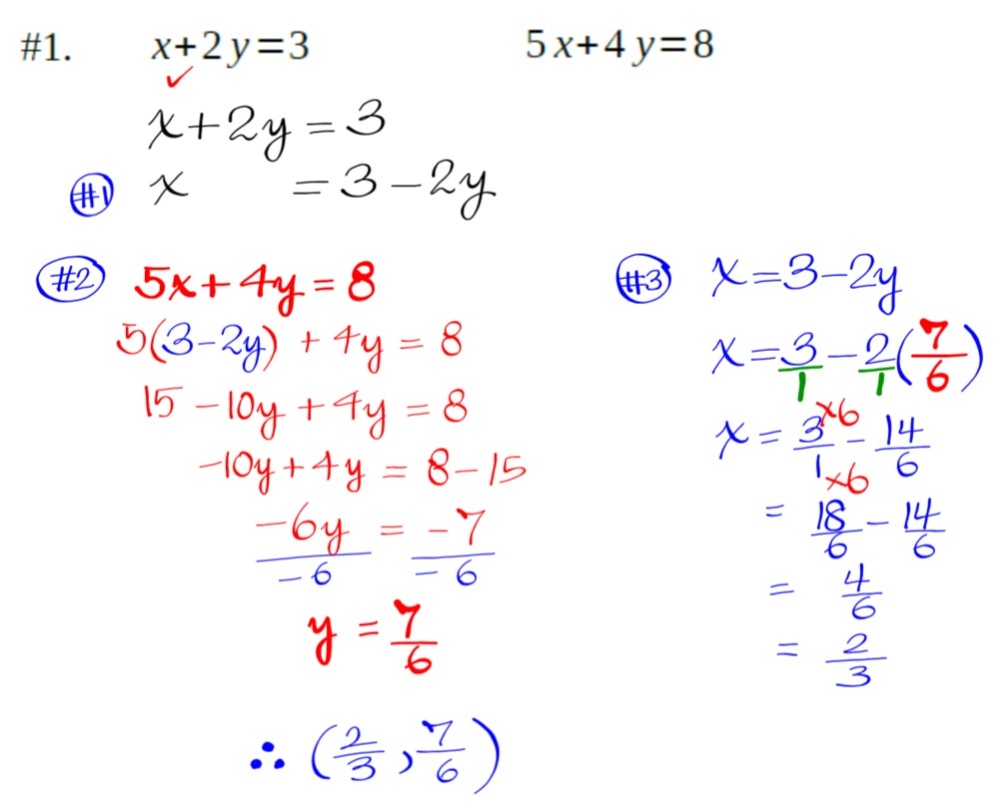 #1. x+2y=3 5x+4y=8
✓
x+2y=3
#1 x =3-2y
#2 5x+4y=8
5(3-2y)+4y=8
15-10y+4y=8
-10y+4y=8-15
-6y=-7
-6 -6
y=7/6
#3 x=3-2y
x=3/1-2/1(7/6)
x=3×6/1×6-14/6
=18/6-14/6
=4/6
=2/3
∴ (2/3,7/6)